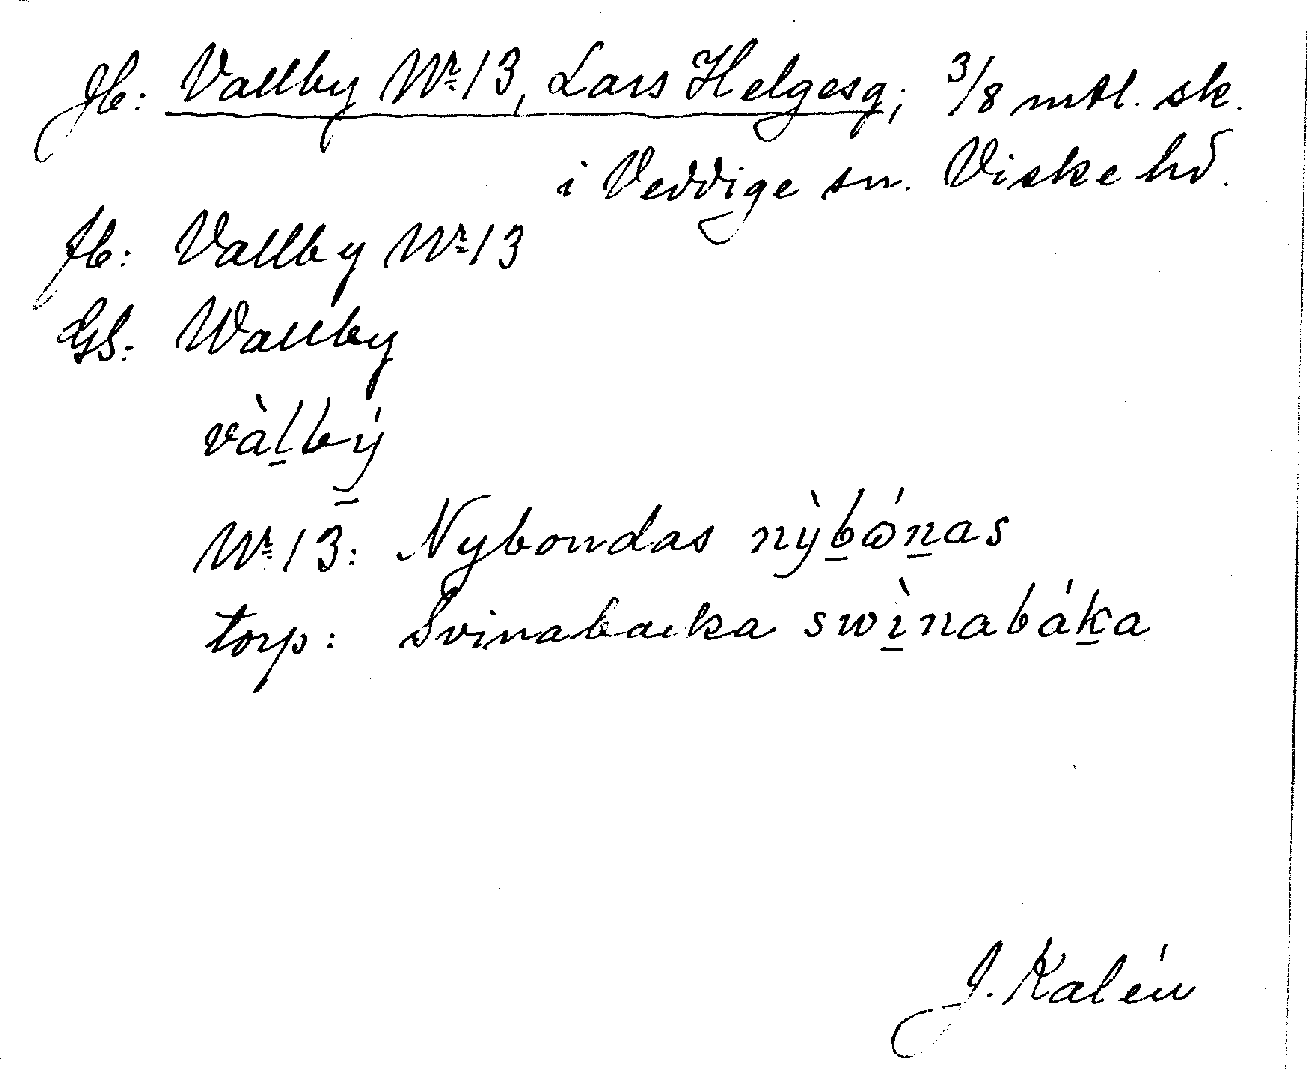 Jb: Vallby Nr 13, Lars Helgesg; 3/8 mtl. sk.
i Veddige sn. Viske hd.
Jb: Vallby Nr 13
GS: Wallby
vàlbý
Nr 13: Nybondas nỳbónas
torp: Svinabacka swìnabáka
J. Kalén